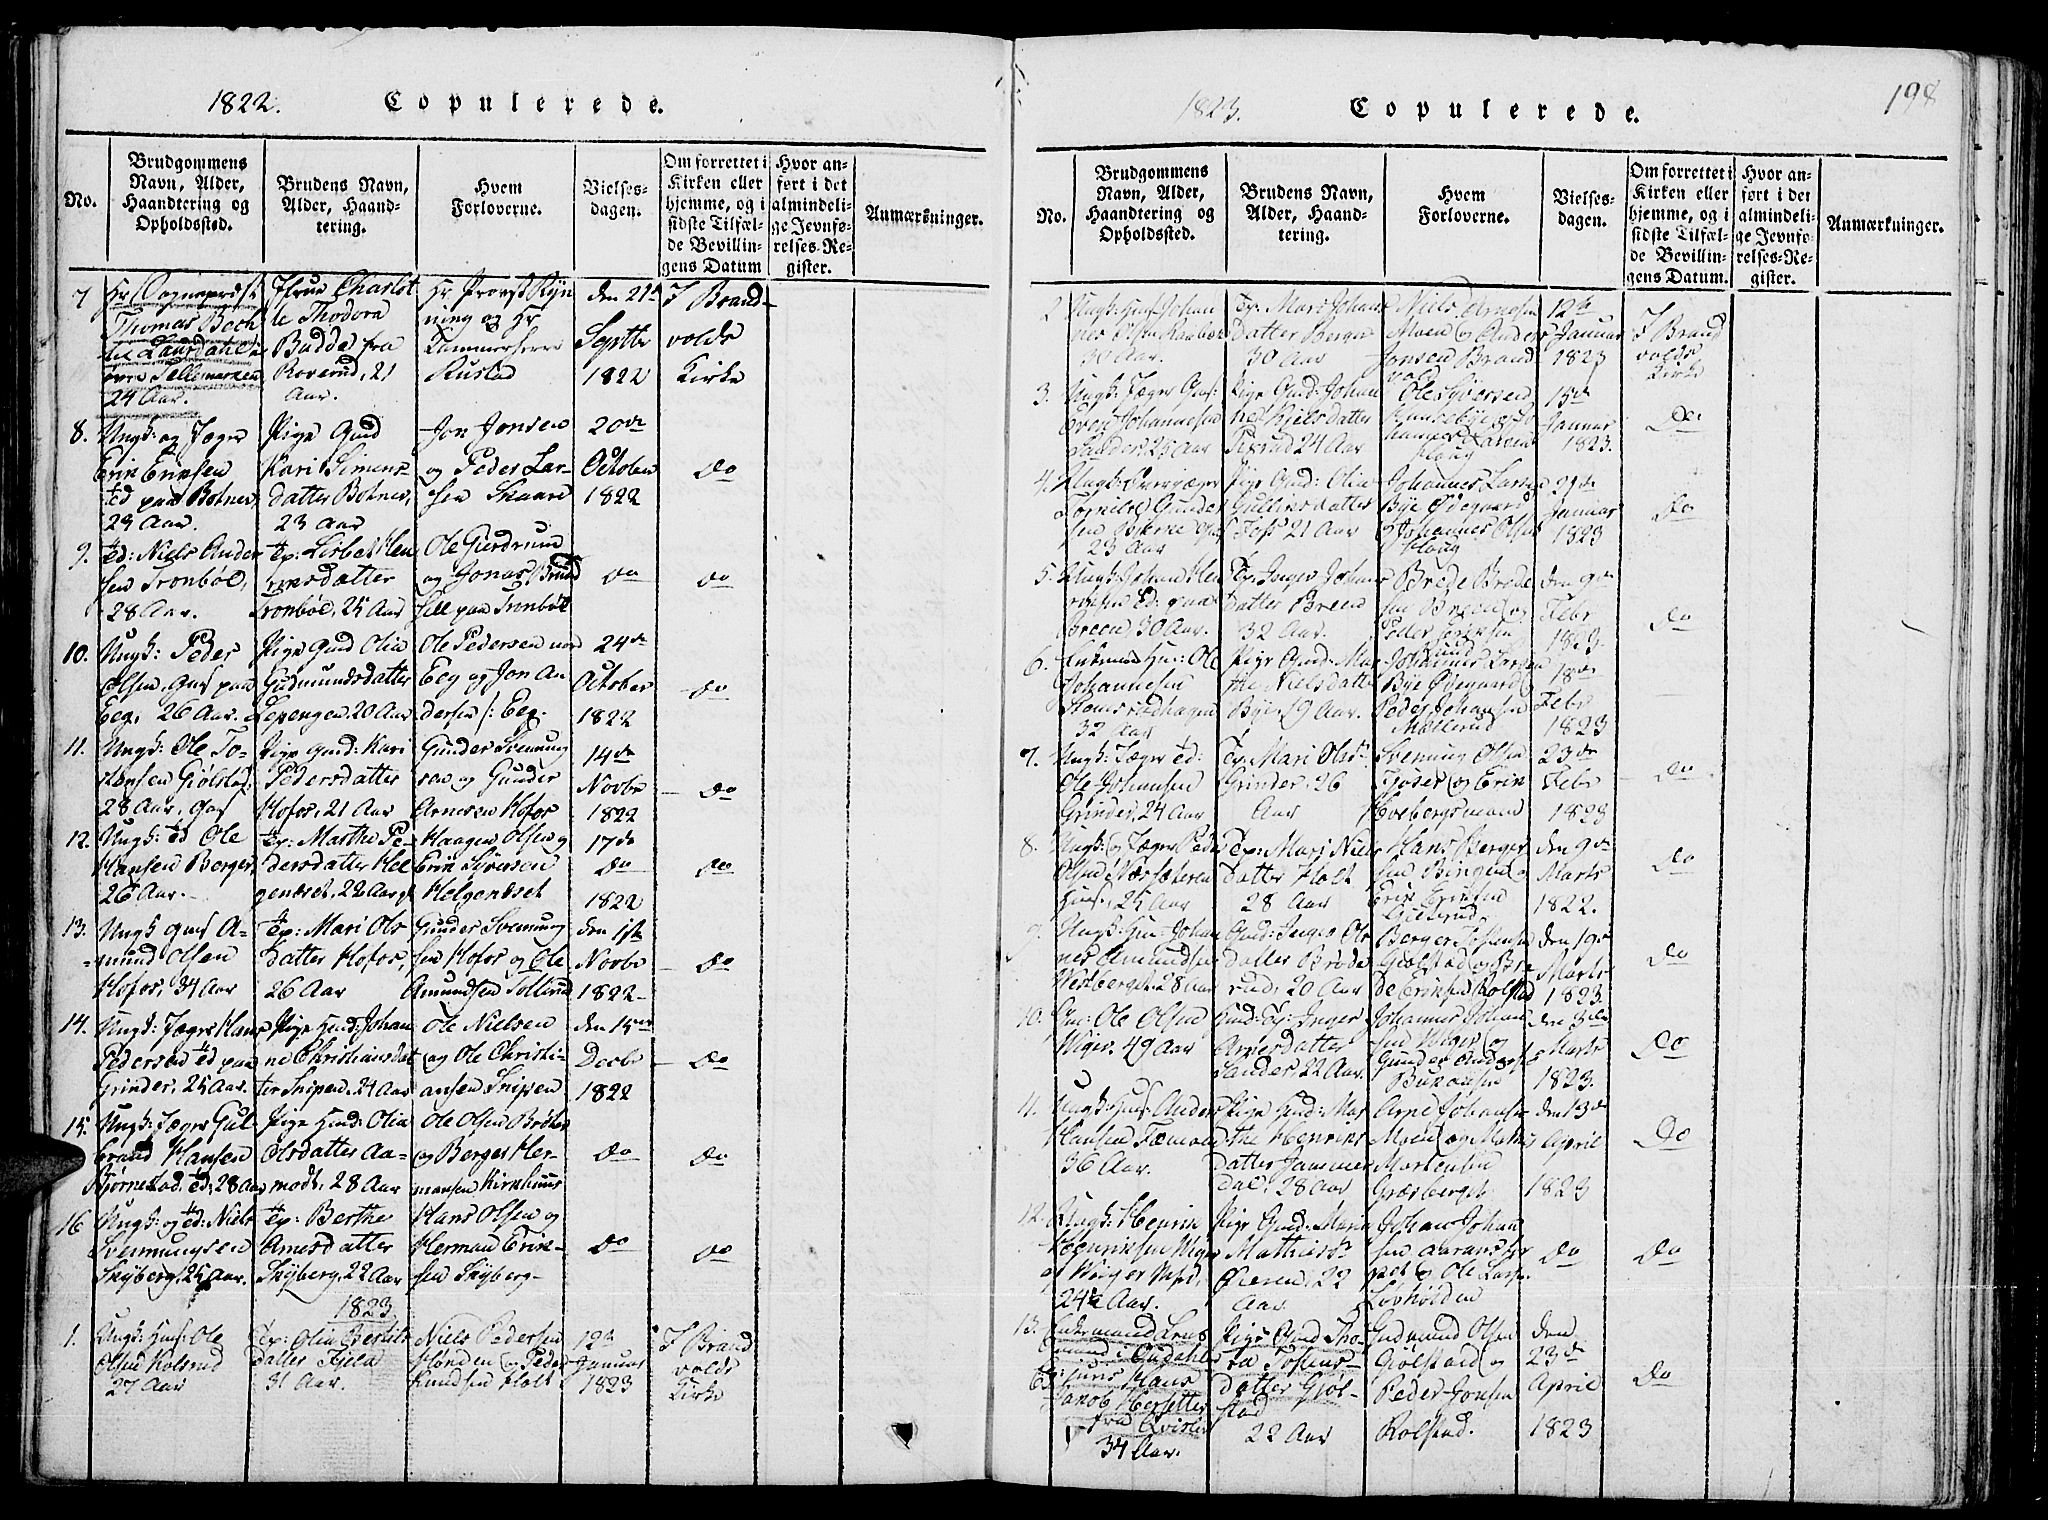 1822. Copulerede.
No.
Brudgommens Navn, Alder, Haandtering og Opholdssted.
Brudens Navn, Alder, Haandtering.
Hvem Forloverne.
Vielsesdagen.
Om forrettet i Kirken eller hjemme, og i sidste Tilfælde Bevillingens Datum
Hvor anført i det almindelige Jevnførelses-Register.
Anmærkninger.
7
Hr Sognepræst
Thomas Bech
til Laurdahl i
øvre Tellemarken
24 Aar.
Jfrue Charlot
te Thodora
Budde fra
Roverud, 21
Aar.
Hr Provst Ryn
ning og Hr
Kammerherre
Rustad
den 21de
Septbr
1822
I Brand-
volds
Kirke
8.
Ungk: og Jæger
Erik Eriksen
Ed paa Botner,
23 Aar.
Pige Gmd
Kari Simens-
datter Botner,
23 Aar
Jon Jonsen
og Peder Lar-
sen Skaare
20de
October
1822
Do
9.
Ed: Niels Ander
sen Tronbøl,
28 Aar.
Ep: Lisbet Hen
riksdatter
Tronbøl, 25 Aar
Ole Gierdrum
og Jonas
paa Tronbøl
Do
Do
10.
Ungk: Peder
Olsen, Gmf paa
Eeg, 26 Aar.
Pige Gmd Olia
Gudmundsdatter
Lepengen, 20 Aar
Ole Pedersen
Eeg og Jon An
dersen Eeg.
24de
October
1822
Do
11.
Ungk: Ole To-
stensen Giølstad,
28 Aar, Gmf
Pige Gmd: Kari
Pedersdatter
Hofos, 21 Aar
Gunder Svenning
sen og Gunder
Arnesen Hofos
14de
Novbr
1822
Do
12.
Ungk: Ed Ole
Hansen Berger,
26 Aar.
Ep: Marthe Pe-
dersdatter Hel
genæset, 22 Aar
Haagen Olsen og
Erik Syversen
Helgenæset
17de
Do
1822
Do
13.
Ungk Gmf A-
mund Olsen
Hofos, 34 Aar
Ep: Mari Ols
datter Hofos,
26 Aar
Gunder Svenning
sen Hofos og Ole
Amundsen Tollerud
den 1ste
Novbr
1822
Do
14.
Ungk: Jæger Hans
Pedersen Ed paa
Grinder, 25 Aar.
Pige Hmd: Johan
ne Christiansdat
ter Snipen, 24 Aar
Ole Nielsen
og Ole Christi-
ansen Snipen
den 15de
Decbr
1822
Do
15.
Ungk: Jæger Gul-
brand Hansen
Bjørnestad, Ed; 28 Aar
Pige Hmd: Olia
Olsdatter Aa-
modt, 28 Aar
Ole Olsen Brøhn
og Berger Her-
mansen Kirkhuus
Do
Do
16
Ungk: og Ed: Niels
Svenningsen
Skyberg, 25 Aar.
Ep: Berthe
Arnesdatter
Skyberg, 22 Aar
Hans Olsen og
Herman Erik-
sen Skyberg-
Do
Do
1823
1.
Ungk: Hmf: Ole
Olsen Kolsrud
27 Aar
Ep: Olia Bertels
datter Fjela
31 Aar.
Niels Pedersen
og Peder
Knudsen Holt
12te
Januar
1823
I Brand
volds
Kirke
1823. Copulerede.
198
No.
Brudgommens Navn, Alder, Haandtering og Opholdssted.
Brudens Navn, Alder, Haandtering.
Hvem Forloverne.
Vielsesdagen.
Om forrettet i Kirken eller hjemme, og i sidste Tilfælde Bevillingens Datum.
Hvor anført i det almindelige Jevnførelses-Register.
Anmærkninger.
2
Ungk: Hmf Johan
nes Olsen
30 Aar.
Ep: Mari Johans
datter Berger
30 Aar
Niels Arnesen
Moen og Anders
Jonsen Brand
vold
12te
Januar
1823
I Brand
volds
Kirke
3.
Ungk: Jæger Gmf:
Even Johannesen
Sander, 25 Aar
Pige Gmd: Johan
ne Kjelsdatter
24 Aar
Ole Syversen
og Jo
hannes Larsen
Houg
15de
Januar
1823.
Do
4.
Ungk:
Tørnils Gunder
sen Bierke Gmf
23 Aar
Pige Gmd: Olia
Gulliksdatter
Foss 21 Aar
Johannes Larsen
Bye Ødegaard
og Johannes Olsen
Houg
29de
Januar
1823
Do
5.
Ungk: Johan Hen
riksen Ed: paa
Breen, 30 Aar.
Ep: Inger Johans
datter Breen
32 Aar.
Brede Brede
sen Breen og
Peder Eriksen
den 9de
Febr
1823.
Do
6.
Enkemand Hmf: Ole
Johannesen
32 Aar
Pige Gmd. Mar
the Nielsdatter
Bye, 19 Aar.
Johannes Larsen
Bye Ødegaard
Peder Johansen
Møllerud
18de
Febr
1823
7.
Ungk: Jæger Ed:
Ole Johansen
Grinder, 24 Aar
Ep: Mari Olsdr
Grinder, 26
Aar
Svenning Olsen
og Erik
Hvebergsmoen
23de
Febr
1823
Do
8.
Ungk: og Jæger Peder
Olsen
Hmf:, 25 Aar
Ep: Mari Niels
datter Holt
28 Aar
Hans Berger
sen Bingen
Erik Eriksen
den 9de
Marts
1822.
Do
9.
Ungk: Hmf: Johan
nes Amundsen
Westberget. 28 Aar
Gmd: Inger Ols
datter Brøde
rud, 20 Aar
Berger Tostensen
Giølstad og Bre
de Eriksen Rolstad
den 19de
Marts
1823.
Do
10.
Em: Ole Olsen
Wiger. 49 Aar
Gmd: Ep: Inger
Arnesdatter
Sander, 22 Aar.
Johannes Johan
sen Wiger og
Gunder Anders
den 3die
Marts
1823.
Do
11.
Ungk: Hmf: Anders
Hansen
36 Aar.
Pige Hmd: Mar
the Henriks
datter Jammer
dal, 28 Aar
Arne Johansen
Moen og Mathis
Mortensen
Græsberget
den 13de
April
1823
Do
12.
Ungk: Henrik
Henriksen Wiger
af Winger Præst.
24½ Aar.
Pige Gmd: Maria
Mathiesdr
Øieren, 22
Aar
Johan Johan
sen
og Ole Larsen
Løvhølden
Do
Do
13.
Enkemand Lens
mand i Guldahl
Hans
Jacob Hersetter
fra Qvislen
34 Aar.
Pige Gmd Tho
ra Tostens-
datter Gjøl-
stad
22 Aar
Gudmund Olsen
Giølstad og
Peder Jonsen
Rolstad.
den
23de
April
1823
Do